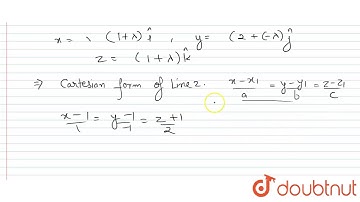 x = (1+λ) î , y = (2+(-λ) ĵ
z = (1+λ) k̂
⇒ Cartesian form of Line 2. x-x₁/a = y-y₁/b = z-z₁/c
x-1/1 = y-1/-1 = z+1/2
doubtnut